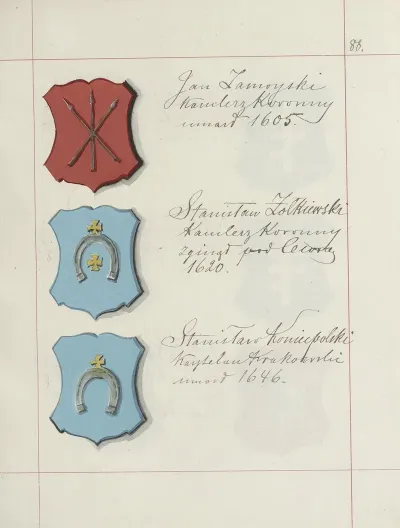 86.
Jan Zamoyski
Kanclerz Koronny
umarł 1605.
Stanisław Żolkiewski
Kanclerz Koronny
zginął pod Cecorą
1620.
Stanisław Koniecpolski
Kasztelan Krakowski
umarł 1646.